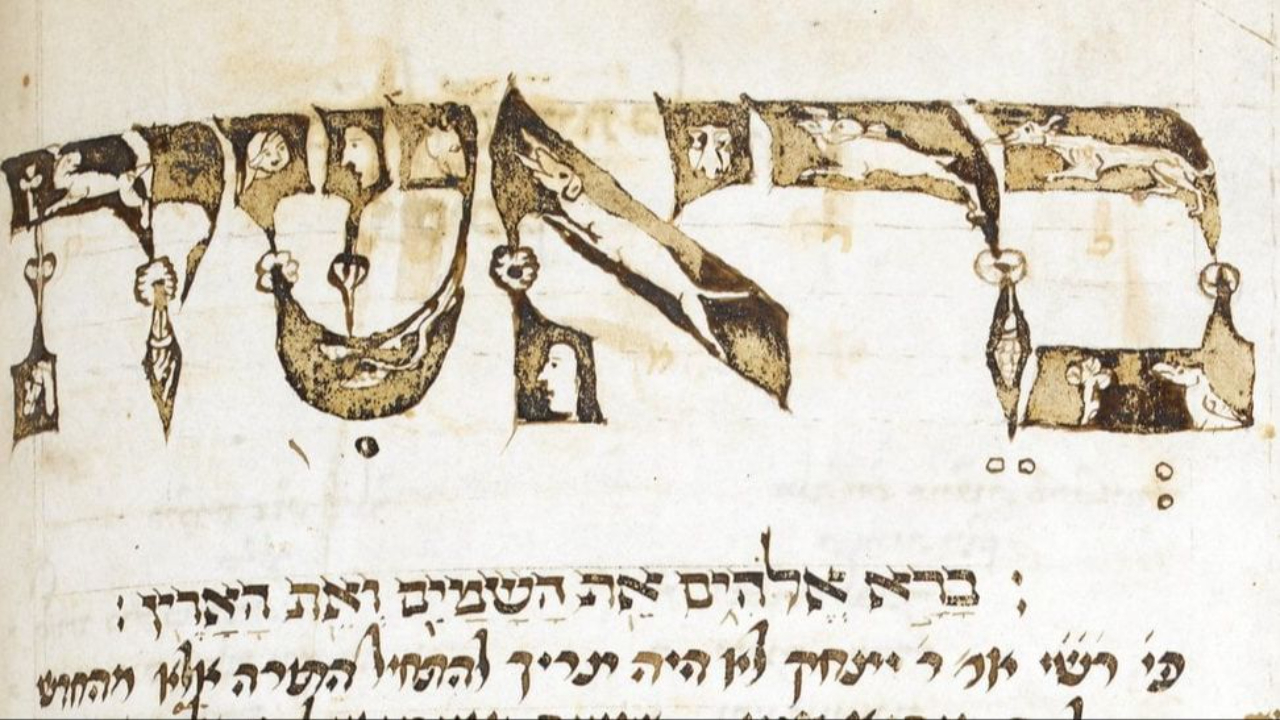 בְּרֵאשִית
: בָּרָא אֱלֹהִים אֵת הַשָּׁמַיִם וְאֵת הָאָרֶץ:
פי׳ רש״י אמ׳ ר׳ יצחק לא היה צריך להתחיל התורה אלא מהחדש